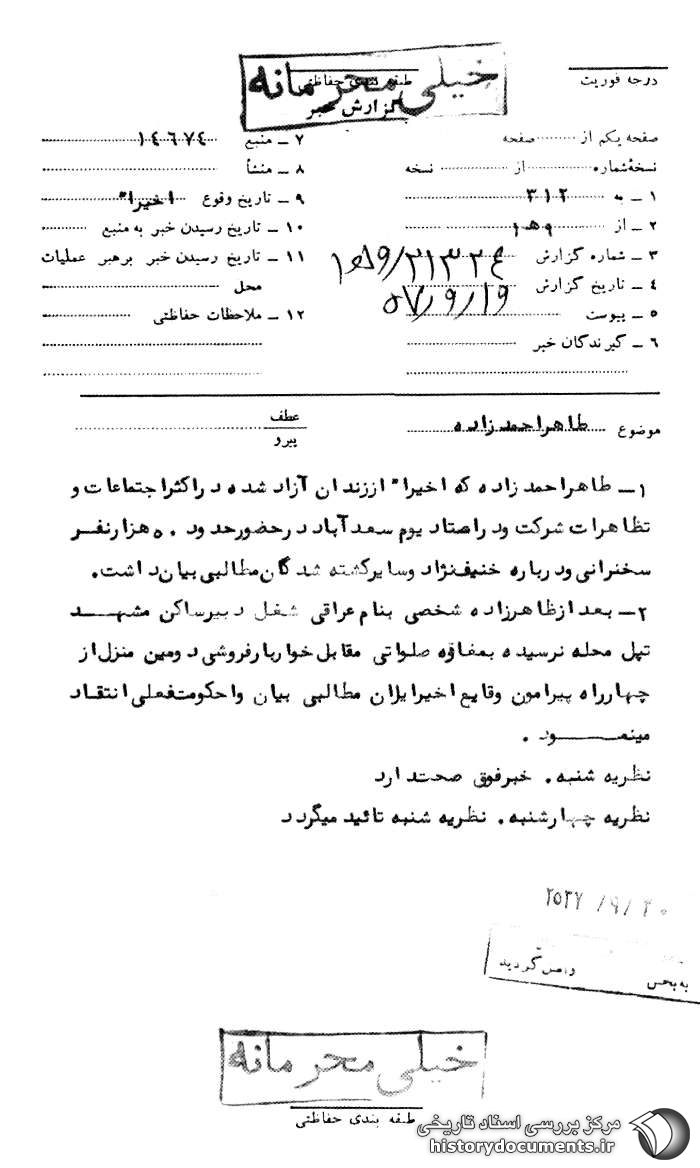 خیلی محرمانه
طبقه بندی حفاظتی
گزارش خبر
درجه فوریت
صفحه یکم از صفحه
نسخه‌شماره از نسخه
۱ ــ به ۳۱۲
۲ ــ از ۹ ه‍ ۱
۳ ــ شماره گزارش ۲۱۳۲۴/۹ه‍۱
۴ ــ تاریخ گزارش ۵۷/۹/۱۹
۵ ــ پیوست
۶ ــ گیرندگان خبر
۷ ــ منبع ۱۴۶۷۴
۸ ــ منشأ
۹ ــ تاریخ وقوع اخیرا"
۱۰ ــ تاریخ رسیدن خبر به منبع
۱۱ ــ تاریخ رسیدن خبر برهبر عملیات
محل
۱۲ ــ ملاحظات حفاظتی
موضوع طاهراحمدزاده
عطف
پیرو
۱ــ طاهراحمدزاده که اخیرا" اززندان آزاد شده دراکثراجتماعات و
تظاهرات شرکت ودراستادیوم سعدآباد درحضورحدود ۵۰هزارنفر
سخنرانی ودرباره خنیف‌نژاد وسایرکشته شدگان‌مطالبی بیان‌داشت.
۲ــ بعد ازظاهرزاده شخصی بنام‌عراقی شغل دبیرساکن مشهد
تپل محله نرسیده بمغازه صلواتی مقابل‌خواربارفروشی دومین منزل‌از
چهارراه پیرامون وقایع اخیرایران مطالبی بیان واحکومت‌فعلی‌انتقاد
مینمود .
نظریه شنبه. خبرفوق صحت‌دارد
نظریه چهارشنبه. نظریه شنبه تائید میگردد
۲۵۳۷/۹/۲۰
به‌بخش واصل گردید
خیلی محرمانه
طبقه بندی حفاظتی
مرکز بررسی اسناد تاریخی
historydocuments.ir